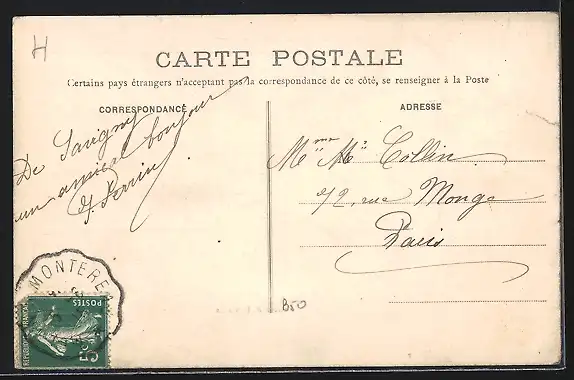 H
CARTE POSTALE
Certains pays étrangers n'acceptant pas la correspondance de ce côté, se renseigner à la Poste
CORRESPONDANCE
De Savigny
un amical bonjour
J. Perrin
ADRESSE
Mme Collin
rue Monge
Paris
MONTEREA
POSTES
REPUBLIQUE FRANÇAISE
5c
B50